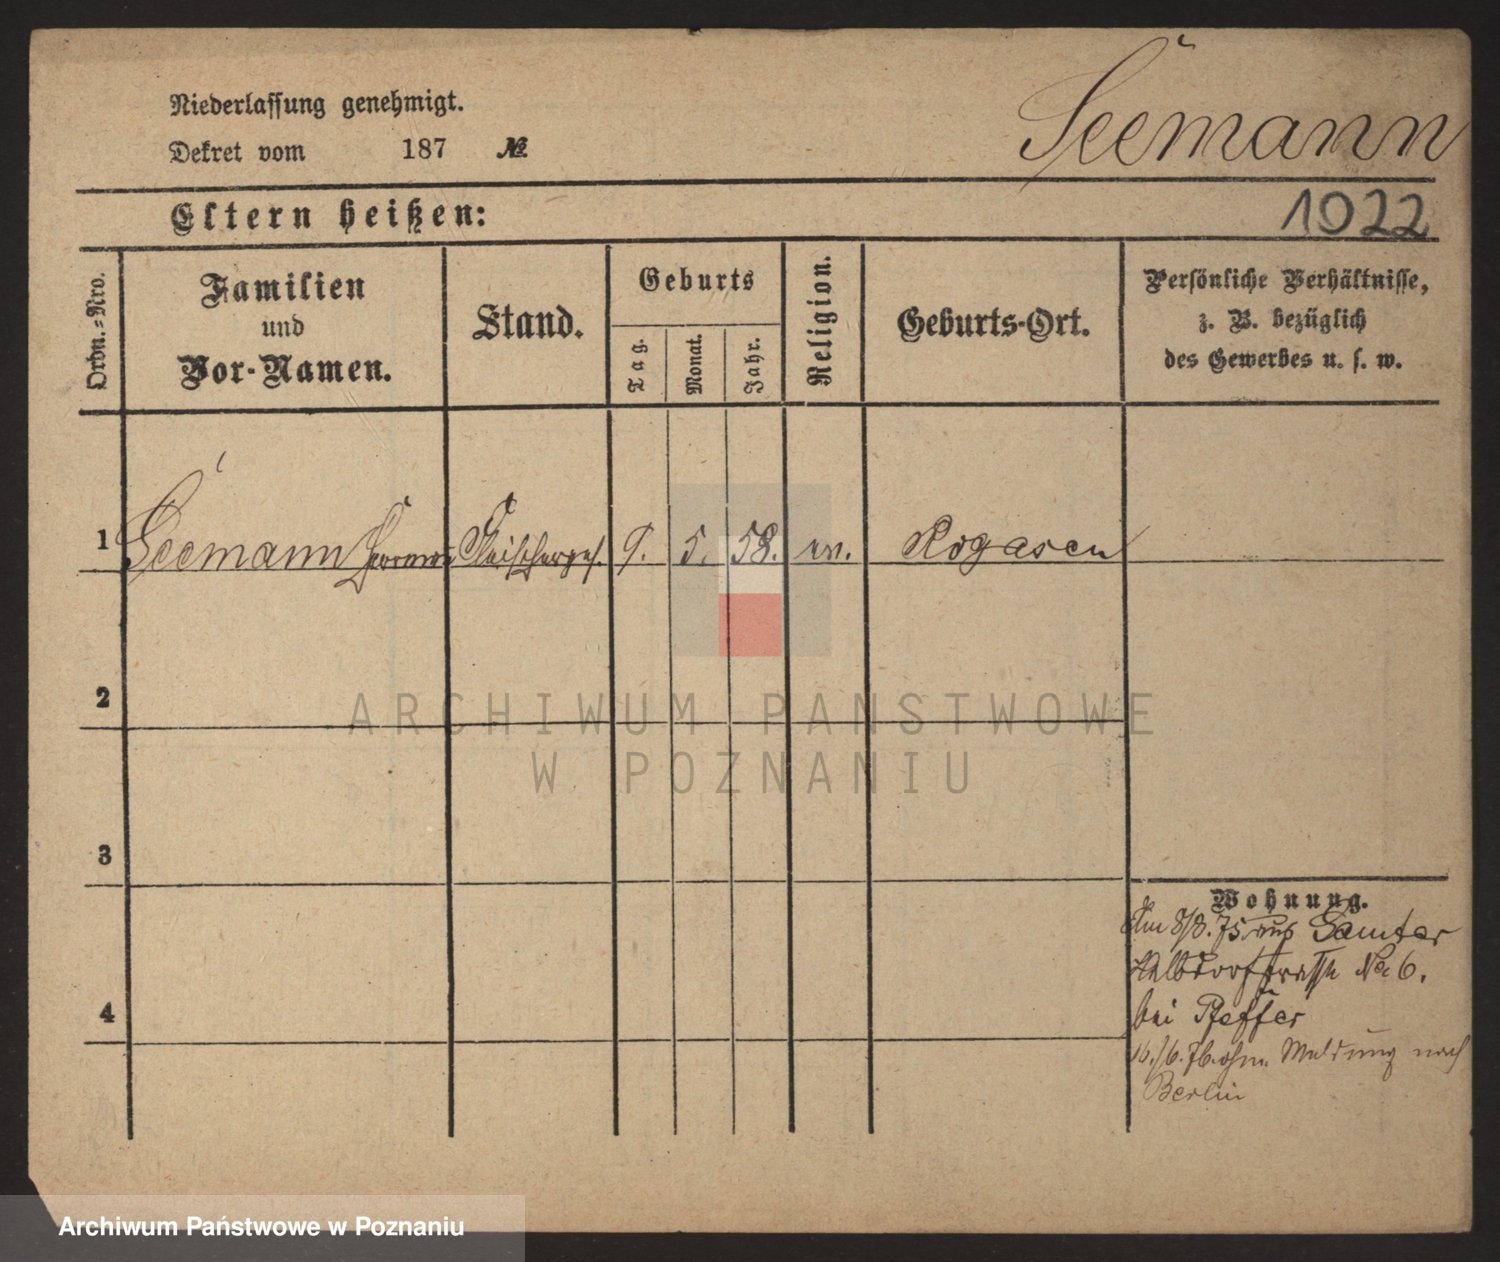 Niederlassung genehmigt.
Dekret vom 187 №
Seemann
1022
Eltern heißen:
Ordn.=Nro.
Familien
und
Vor-Namen.
Stand.
Geburts
Tag.
Monat.
Jahr.
Religion.
Geburts-Ort.
Persönliche Verhältnisse,
z. B. bezüglich
des Gewerbes u. s. w.
1 Seemann Herrmann Fleischerges. 9. 5. 58. ev. Rogasen
2
3
4
Wohnung.
Am 8/8. 75 aus Samter
Halbdorfstrasse No 6.
bei Pfeffer
16./6. 76. ohne Meldung nach
Berlin
ARCHIWUM PAŃSTWOWE
W POZNANIU
Archiwum Państwowe w Poznaniu